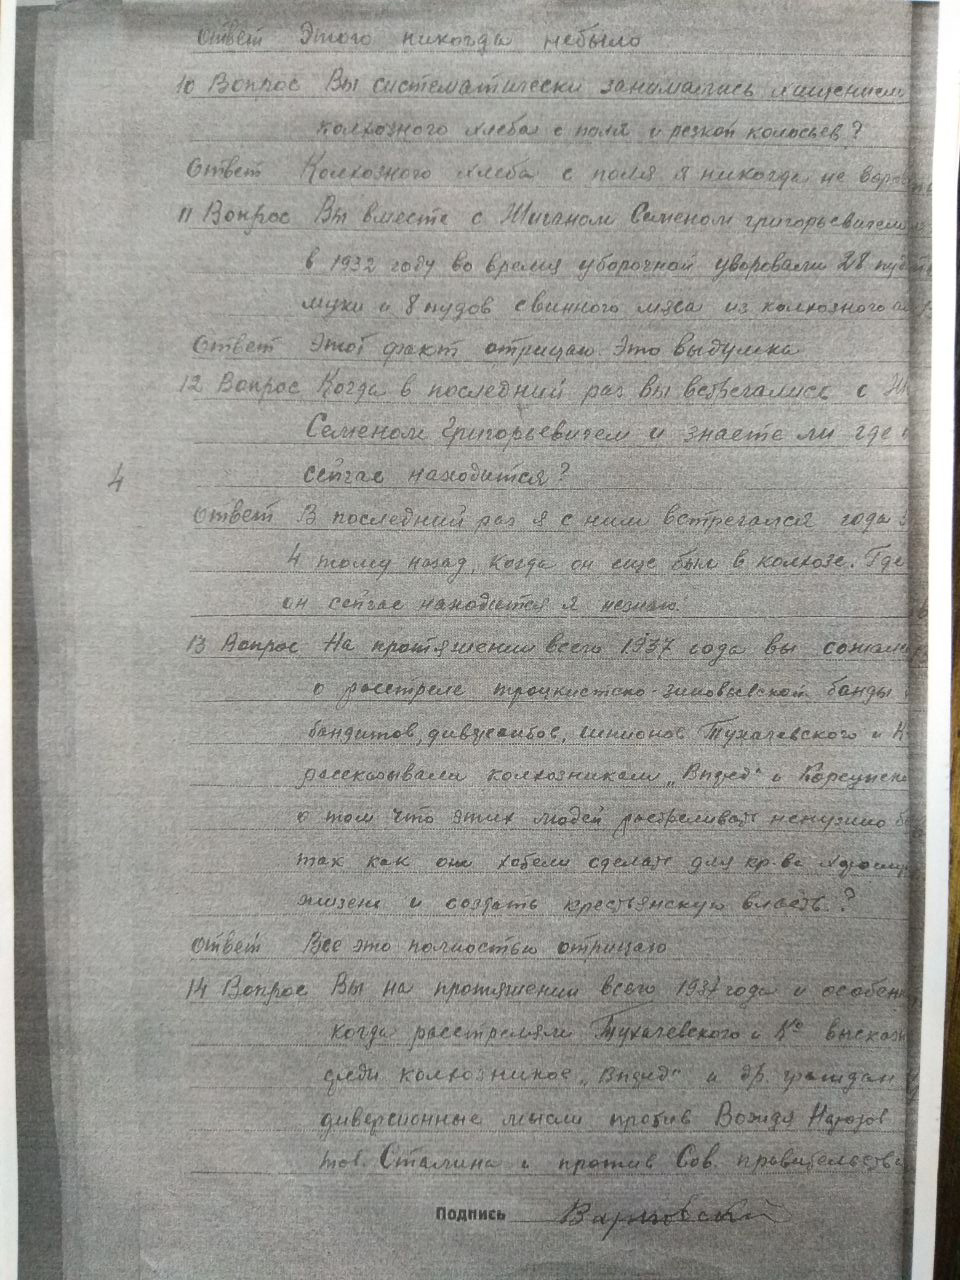 Ответ Этого никогда небыло
10 Вопрос Вы систематически занимались хищением
колхозного хлеба с поля и резкой колосьев?
Ответ Колхозного хлеба с поля я никогда не
11 Вопрос Вы вместе с Семеном григорьевичем
в 1932 году во время уборочной уворовали 28
муки и 8 пудов свинного мяса из колхозного
Ответ Этот факт отрицаю. Это выдумка
12 Вопрос Когда в последний раз вы встречались с
Семеном Григорьевичем и знаете ли где
сейчас находится?
4
Ответ В последний раз я с ним встречался года
4 тому назад, когда он еще был в колхозе. Где
он сейчас находится я незнаю.
13 Вопрос На протяшении всего 1937 года вы
о расстреле троцкистско-зиновьевской банды
бандитов, шпионов Тухачевского и
рассказывали колхозникам
о том что этих людей растреливать ненужно
так как они хотели сделать для кр-ва
жизнь и создать крестьянскую власть?
Ответ Все это полностью отрицаю
14 Вопрос Вы на протяшении всего 1937 года и
когда расстреляли Тухачевского и Ко
среди колхозников и др. граждан
диверсионные мысли против Вождя Народов
тов. Сталина и против Сов. правительства
Подпись